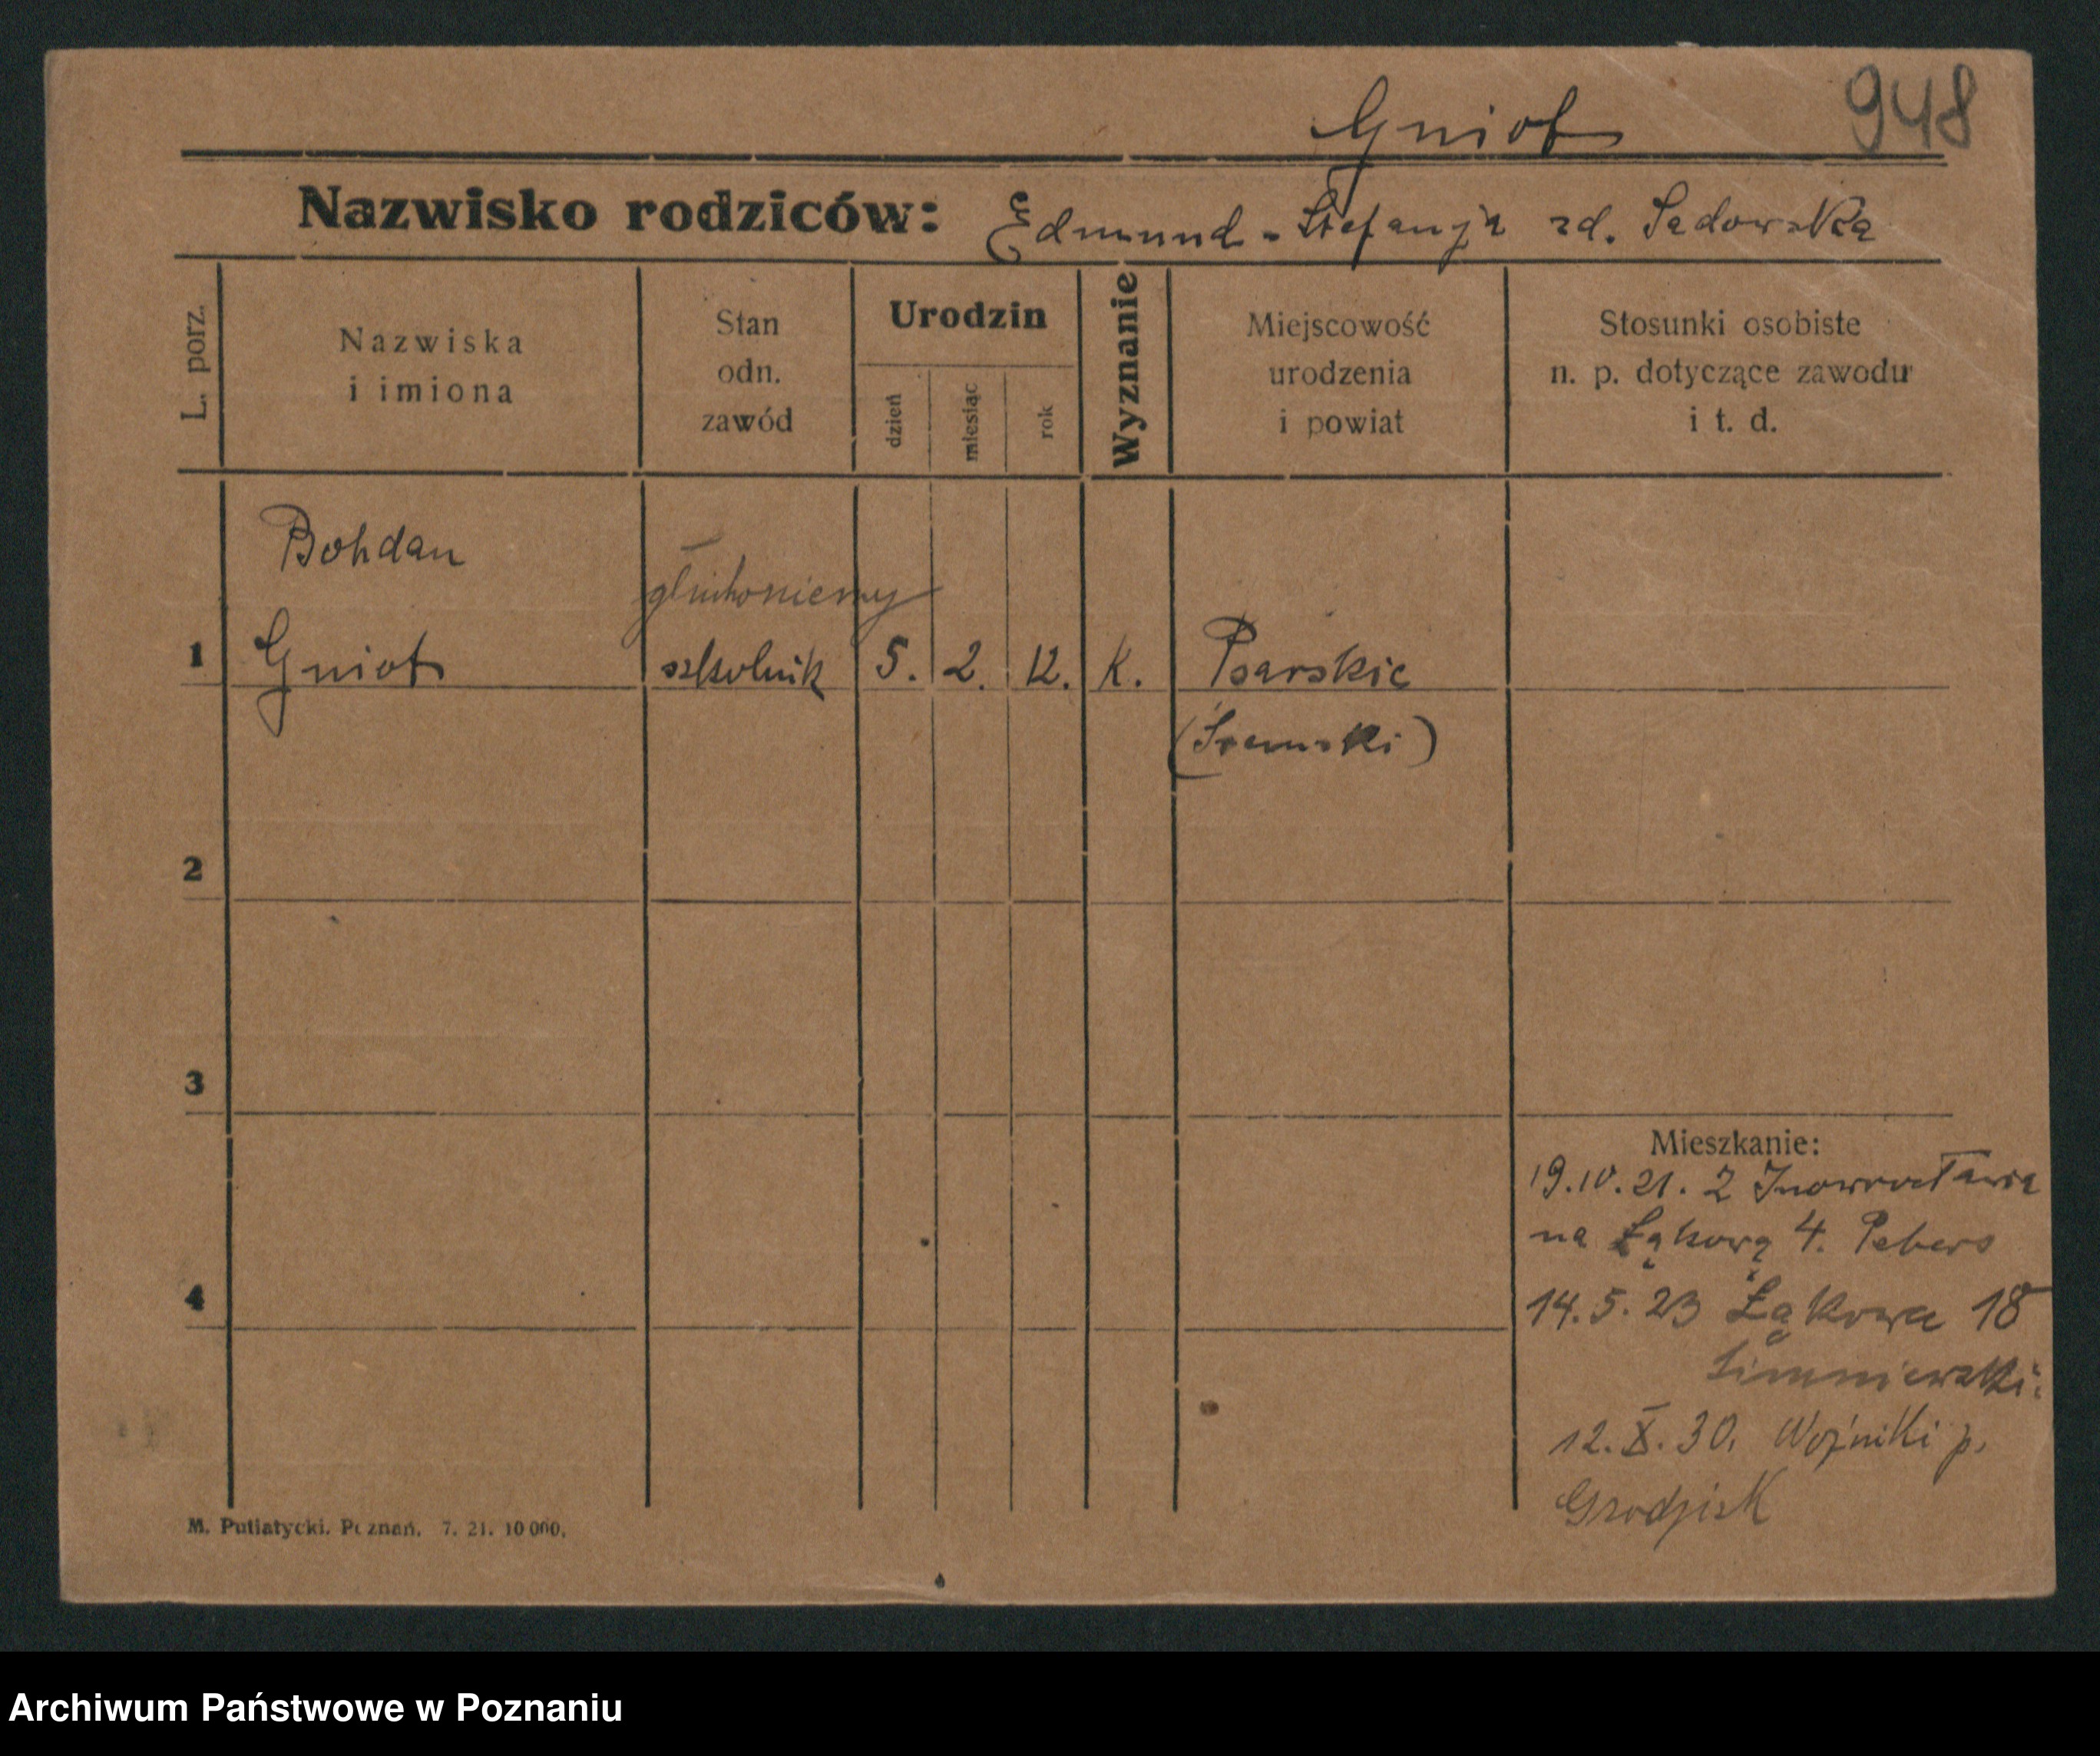 Gniot 948
Nazwisko rodziców: Edmund - Stefanja zd. Sadowska
L. porz.
Nazwiska
i imiona
Stan
odn.
zawód
Urodzin
dzień
miesiąc
rok
Wyznanie
Miejscowość
urodzenia
i powiat
Stosunki osobiste
n. p. dotyczące zawodu
i t. d.
Bohdan
głuchoniemy
1 Gniot szkolnik 5. 2. 12. K. Psarskie
(Śremski)
2
3
Mieszkanie:
19.IV.21. z Inowrocławia
na Łąkową 4.
4
14.5.23 Łąkowa 18
12.X.30. Woźniki p.
Grodzisk
M. Putiatycki. Poznań. 7. 21. 10 000.
Archiwum Państwowe w Poznaniu